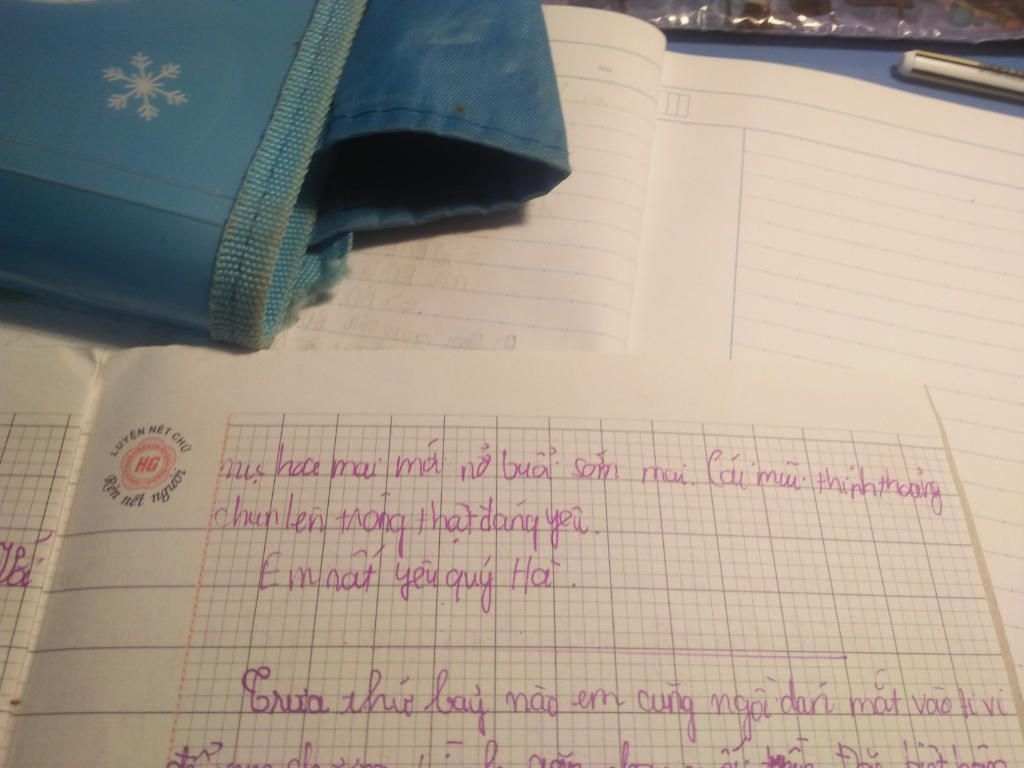 LUYỆN NÉT CHỮ
HG
Rèn nết người
nụ hoa mai mới nở buổi sớm mai. Cái mũi thỉnh thoảng
chun lên trông thật đáng yêu.
Em rất yêu quý Hà.
Trưa thứ bảy nào em cũng ngồi dán mắt vào ti vi